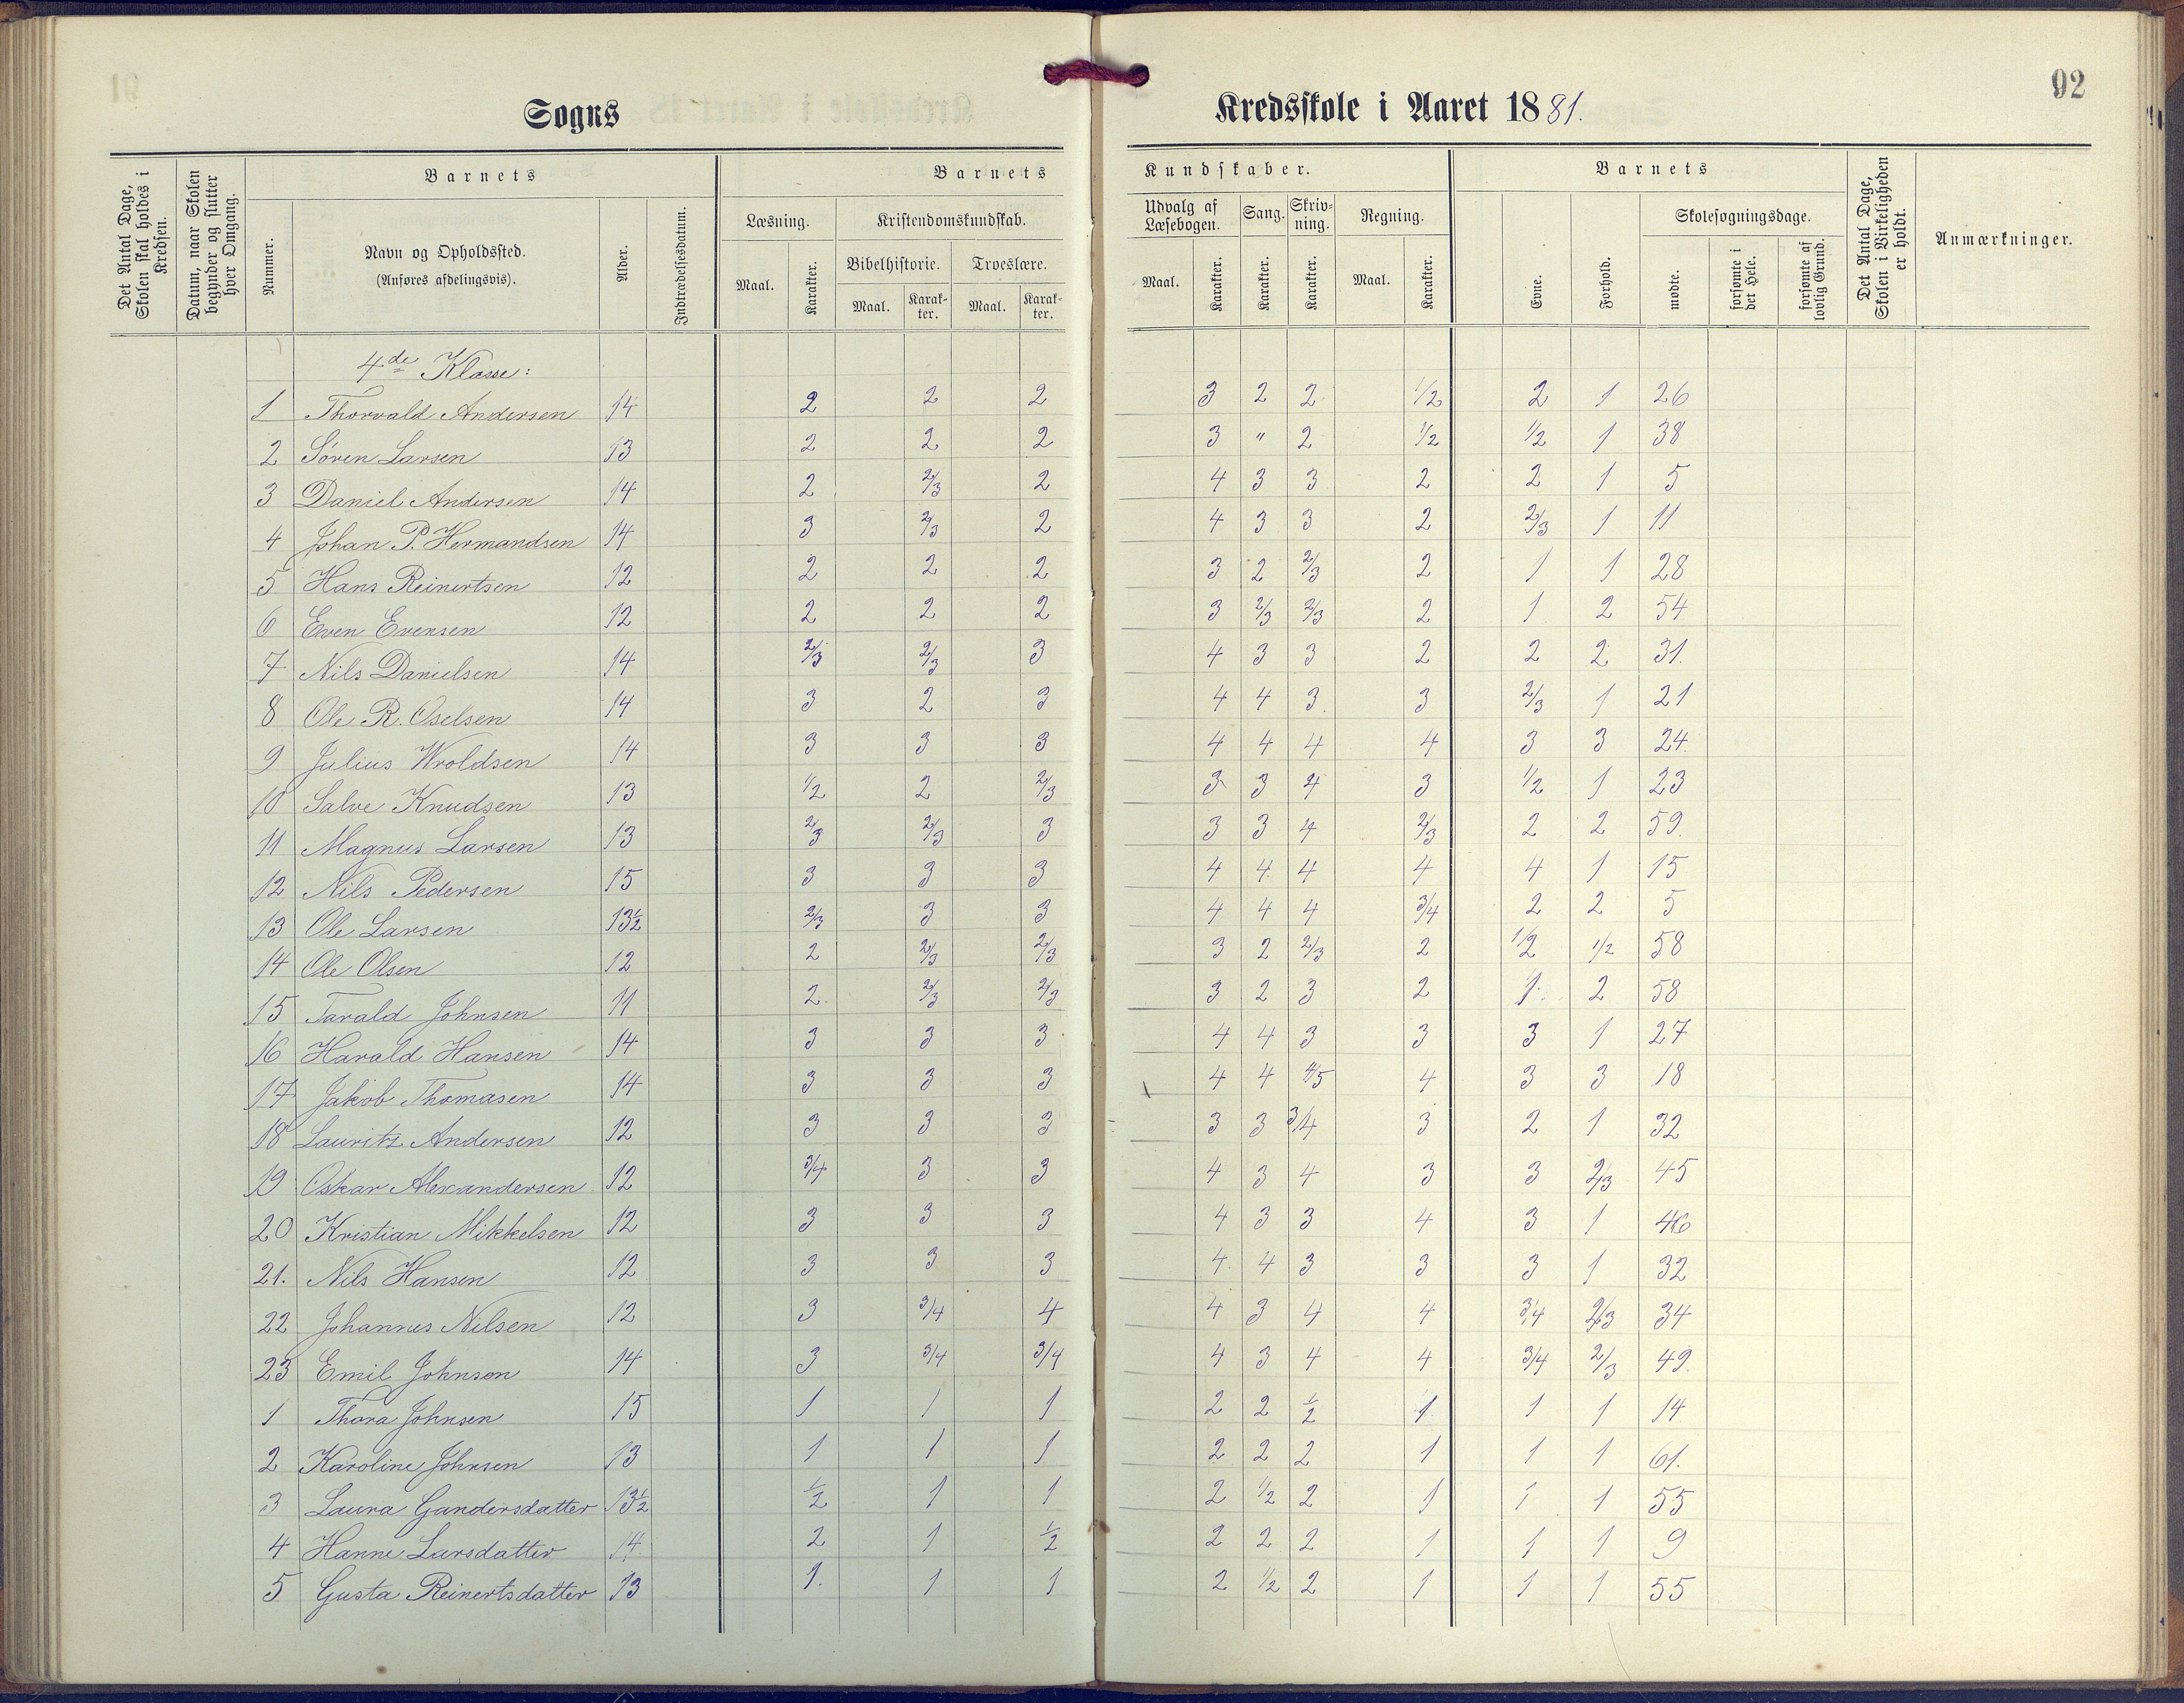 92
Sogns Kredsskole i Aaret 1881.
Det Antal Dage, Skolen skal holdes i Kredsen.
Datum, naar Skolen begynder og slutter hver Omgang.
Barnets
Nummer.
Navn og Opholdssted.
(Anføres afdelingsvis).
Alder.
Indtrædelsesdatum.
Barnets Kundskaber.
Læsning.
Maal.
Karakter.
Kristendomskundskab.
Bibelhistorie.
Maal.
Karak-ter.
Troeslære.
Maal.
Karak-ter.
Udvalg af Læsebogen.
Maal.
Karakter.
Sang.
Karakter.
Skriv-ning.
Karakter.
Regning.
Maal.
Karakter.
Barnets
Evne.
Forhold.
Skolesøgningsdage.
mødte.
forsømte i det Hele.
forsømte af lovlig Grund.
Det Antal Dage, Skolen i Virkeligheden er holdt.
Anmærkninger.
4de Klasse:
1 Thorvald Andersen 14 2 2 2 3 2 2 1/2 2 1 26
2 Søren Larsen 13 2 2 2 3 " 2 1/2 1/2 1 38
3 Daniel Andersen 14 2 2/3 2 4 3 3 2 2 1 5
4 Johan P. Hermandsen 14 3 2/3 2 4 3 3 2 2/3 1 11
5 Hans Reinertsen 12 2 2 2 3 2 2/3 2 1 1 28
6 Even Evensen 12 2 2 2 3 2/3 2/3 2 1 2 54
7 Nils Danielsen 14 2/3 2/3 3 4 3 3 2 2 2 31.
8 Ole R. Oselsen 14 3 2 3 4 4 3. 3 2/3 1 21
9 Julius Wroldsen 14 3 3 3 4 4 4 4 3 3 24.
10 Salve Knudsen 13 1/2 2 2/3 3 3 4 3 1/2 1 23
11 Magnus Larsen 13 2/3 2/3 3 3 3 4 2/3 2 2 59.
12 Nils Pedersen 15 3 3 3 4 4 4 4 4 1 15
13 Ole Larsen 13½ 2/3 3 3 4 4 4 3/4 2 2 5
14 Ole Olsen 12 2 2/3 2/3 3 2 2/3 2 1/2 1/2 58
15 Tarald Johnsen 11 2. 2/3 2/3 3 2 3 2 1 2 58
16 Harald Hansen 14 3 3 3 4 4 3 3 3 1 27
17 Jakob Thomasen 14 3 3 3 4 4 4/5 4 3 3 18
18 Lauritz Andersen 12 3 3 3 3 3 3/4 3 2 1 32
19 Oskar Alexandersen 12 3/4 3 3 4 3 4 3 3 2/3 45
20 Kristian Mikkelsen 12 3 3 3 4 3 3 4 3 1 46
21. Nils Hansen 12 3 3 3 4 4 3 3 3 1 32
22 Johannes Nilsen 12 3 3/4 4 4 3 4 4 3/4 2/3 34
23 Emil Johnsen 14 3 3/4 3/4 4 3 4 4 3/4 2/3 49.
1 Thora Johnsen 15 1 1 1 2 2 ½ 1 1 1 14
2 Karoline Johnsen 13 1 1 1 2 2 2 1 1 1 61.
3 Laura Gundersdatter 13½ ½ 1 1 2 1/2 2 1 1 1 55
4 Hanne Larsdatter 14 2 1 ½ 2 2 2 1 1 1 9
5 Gusta Reinertsdatter 13 1. 1 1 2 1/2 2 1 1 1 55